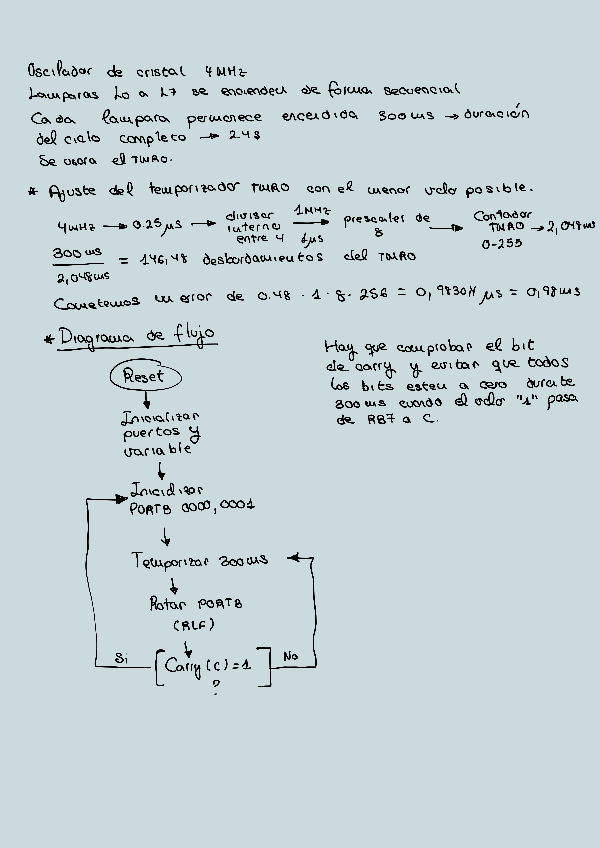 Oscilador de cristal 4 MHz
Lamparas L0 a L7 se encienden de forma secuencial
Cada lampara permanece encendida 300 ms → duración
del ciclo completo → 2.4 s
Se usara el TMR0.
* Ajuste del temporizador TMR0 con el menor valor posible.
4 MHz → 0.25 µs → divisor interno entre 4 → 1 MHz 1 µs → prescaler de 8 → Contador TMR0 0-255 → 2,048 ms
300 ms / 2,048 ms = 146,48 desbordamientos del TMR0
Cometemos un error de 0.48 · 1 · 8 · 256 = 0,98304 µs = 0,98 ms
* Diagrama de flujo
Reset
Inicializar
puertos y
variable
Inicializar
PORTB 0000,0001
Temporizar 300 ms
Rotar PORTB
(RLF)
Carry (C) = 1
?
Si
No
Hay que comprobar el bit
de carry y evitar que todos
los bits esten a cero durante
300 ms cuando el valor "1" pasa
de RB7 a C.